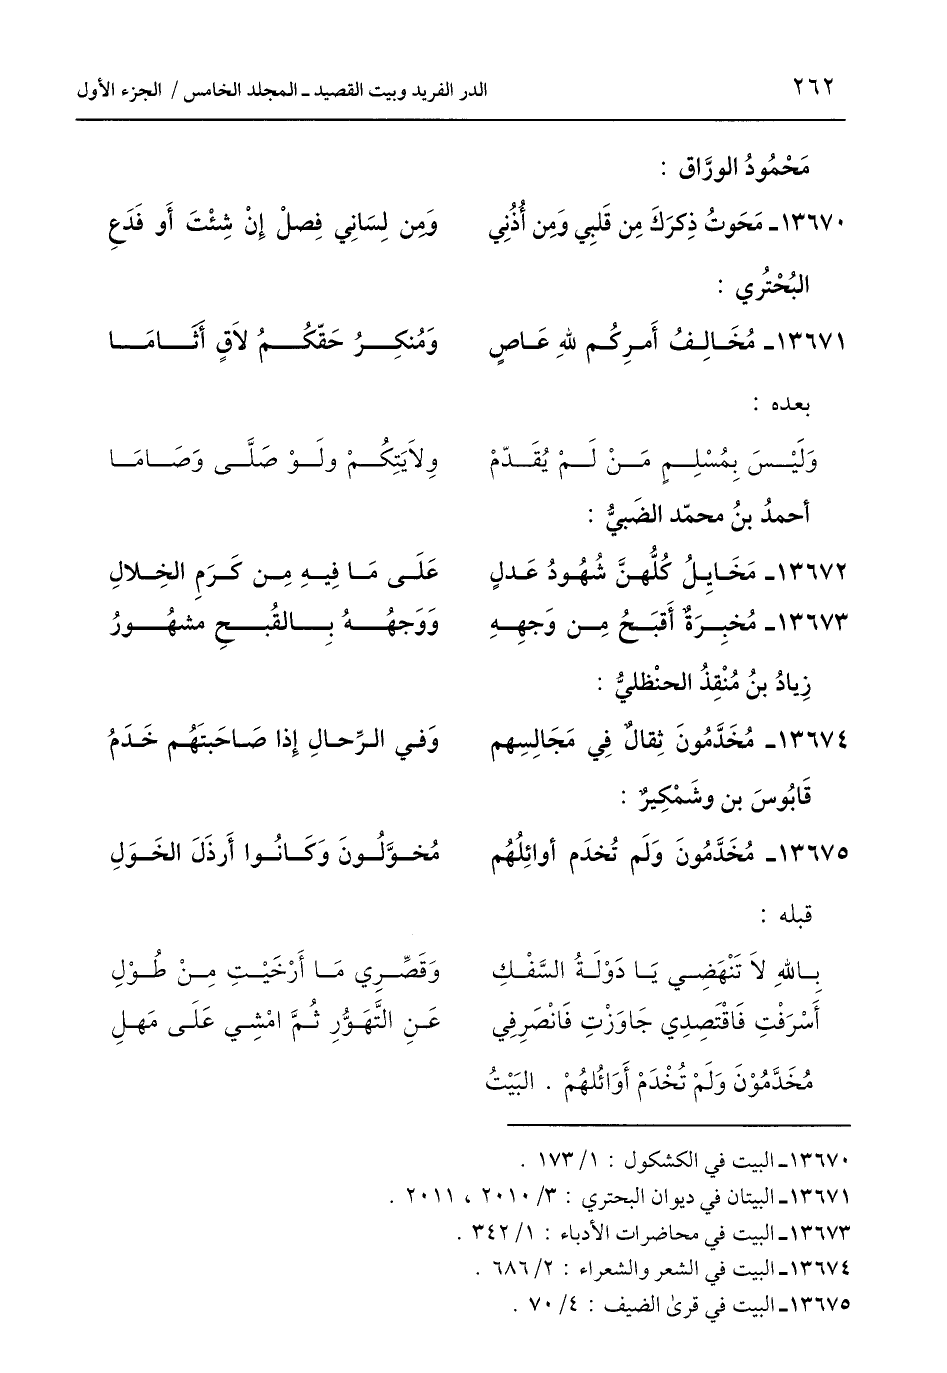 ٢٦٢ الدر الفريد وبيت القصيد ـ المجلد الخامس / الجزء الأول
مَحْمُودُ الورَّاق :
١٣٦٧٠ـ مَحَوتُ ذِكرَكَ مِن قَلبِي وَمِن أُذُنِي وَمِن لِسَانِي فِصلْ إنْ شِئْتَ أَو فَدَعِ
البُحْتُرِي :
١٣٦٧١ـ مُخَالِفُ أَمرِكُم للهِ عَاصٍ وَمُنكِرُ حَقّكُمُ لاَقٍ أَثَامَا
بعده :
وَلَيْسَ بِمُسْلِمٍ مَنْ لَمْ يُقَدّمْ وِلاَيَتِكُمْ ولَوْ صَلَّى وَصَامَا
أحمدُ بنُ محمّد الضَبيُّ :
١٣٦٧٢ـ مَخَايِلُ كُلُّهنَّ شُهُودُ عَدلٍ عَلَى مَا فِيهِ مِن كَرَمِ الخِلالِ
١٣٦٧٣ـ مُخبِرَةٌ أَقبَحُ مِن وَجهِهِ وَوَجهُهُ بِالقُبحِ مشهُورُ
زِيادُ بنُ مُنْقِذُ الحنْظليُّ :
١٣٦٧٤ـ مُخَدَّمُونَ ثِقالٌ فِي مَجَالِسِهم وَفي الرِّحالِ إذا صَاحَبتَهُم خَدَمُ
قَابُوسَ بن وشَمْكِيرٌ :
١٣٦٧٥ـ مُخَدَّمُونَ وَلَم تُخدَم أوائِلُهُم مُخوَّلُونَ وَكَانُوا أَرذَلَ الخَوَلِ
قبله :
بِاللهِ لاَ تَنْهَضِي يَا دَوْلَةُ السَّفْكِ وَقَصِّرِي مَا أَرْخَيْتِ مِنْ طُوْلِ
أَسْرَفْتِ فَاقْتَصِدِي جَاوَزْتِ فَانْصَرِفِي عَنِ التَّهَوُّرِ ثُمَّ امْشِي عَلَى مَهلِ
مُخَدَّمُوْنَ وَلَمْ تُخْدَمْ أَوَائُلهُمْ . البَيْتُ
١٣٦٧٠ـ البيت في الكشكول : ١/ ١٧٣ .
١٣٦٧١ـ البيتان في ديوان البحتري : ٣/ ٢٠١٠ ، ٢٠١١ .
١٣٦٧٣ـ البيت في محاضرات الأدباء : ١/ ٣٤٢ .
١٣٦٧٤ـ البيت في الشعر والشعراء : ٢/ ٦٨٦ .
١٣٦٧٥ـ البيت في قرىٰ الضيف : ٤/ ٧٠ .